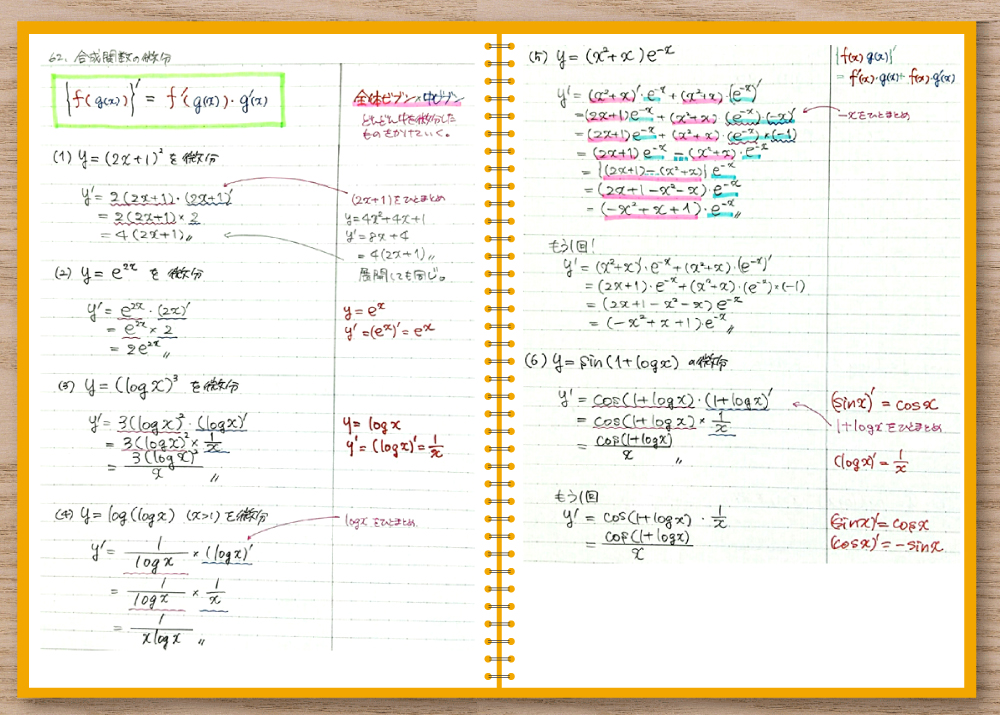 62. 合成関数の微分
{f(g(x))}' = f'(g(x))・g'(x)
全体ビブン×中ビブン
どんどん中を微分した
ものをかけていく。
(1) y=(2x+1)² を微分
y'= 2(2x+1)・(2x+1)'
= 2(2x+1)×2
= 4(2x+1)〃
(2x+1)をひとまとめ
y=4x²+4x+1
y'=8x+4
=4(2x+1)〃
展開しても同じ。
(2) y=e^{2x} を微分
y'= e^{2x}・(2x)'
= e^{2x}×2
= 2e^{2x}〃
y=e^x
y'=(e^x)'=e^x
(3) y=(logx)³ を微分
y'= 3(logx)²・(logx)'
= 3(logx)²×1/x
= 3(logx)²/x 〃
y=logx
y'=(logx)'=1/x
(4) y=log(logx) (x>1) を微分
y'= 1/logx ×(logx)'
= 1/logx × 1/x
= 1/xlogx 〃
logxをひとまとめ
(5) y=(x²+x)e^{-x}
y'=(x²+x)'・e^{-x}+(x²+x)・(e^{-x})'
=(2x+1)e^{-x}+(x²+x)・(e^{-x})・(-x)'
=(2x+1)e^{-x}+(x²+x)・(e^{-x})×(-1)
=(2x+1)e^{-x}-(x²+x)・e^{-x}
={(2x+1)-(x²+x)}e^{-x}
=(2x+1-x²-x)・e^{-x}
=(-x²+x+1)・e^{-x}〃
{f(x)g(x)}'
=f'(x)・g(x)+f(x)・g'(x)
-xをひとまとめ
もう1回!
y'=(x²+x)'・e^{-x}+(x²+x)・(e^{-x})'
=(2x+1)・e^{-x}+(x²+x)・(e^{-x})×(-1)
=(2x+1-x²-x)e^{-x}
=(-x²+x+1)・e^{-x}〃
(6) y=sin(1+logx) の微分
y'= cos(1+logx)・(1+logx)'
= cos(1+logx)×1/x
= cos(1+logx)/x 〃
(sinx)'=cosx
1+logxをひとまとめ
(logx)'=1/x
もう1回
y'= cos(1+logx)・1/x
= cos(1+logx)/x
(sinx)'=cosx
(cosx)'=-sinx